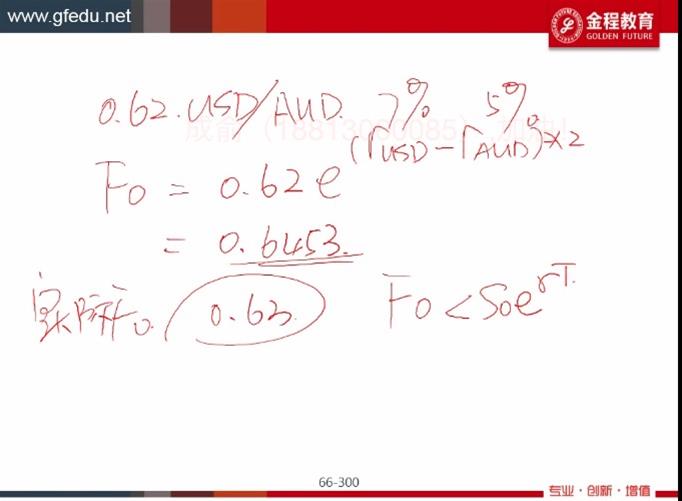 www.gfedu.net
金程教育
GOLDEN FUTURE
0.62 USD/AUD. 7% 5%
F0 = 0.62e (rUSD - rAUD)×2
= 0.6453
实际F0. 0.63 F0 < S0e^rT.
66-300
专业·创新·增值